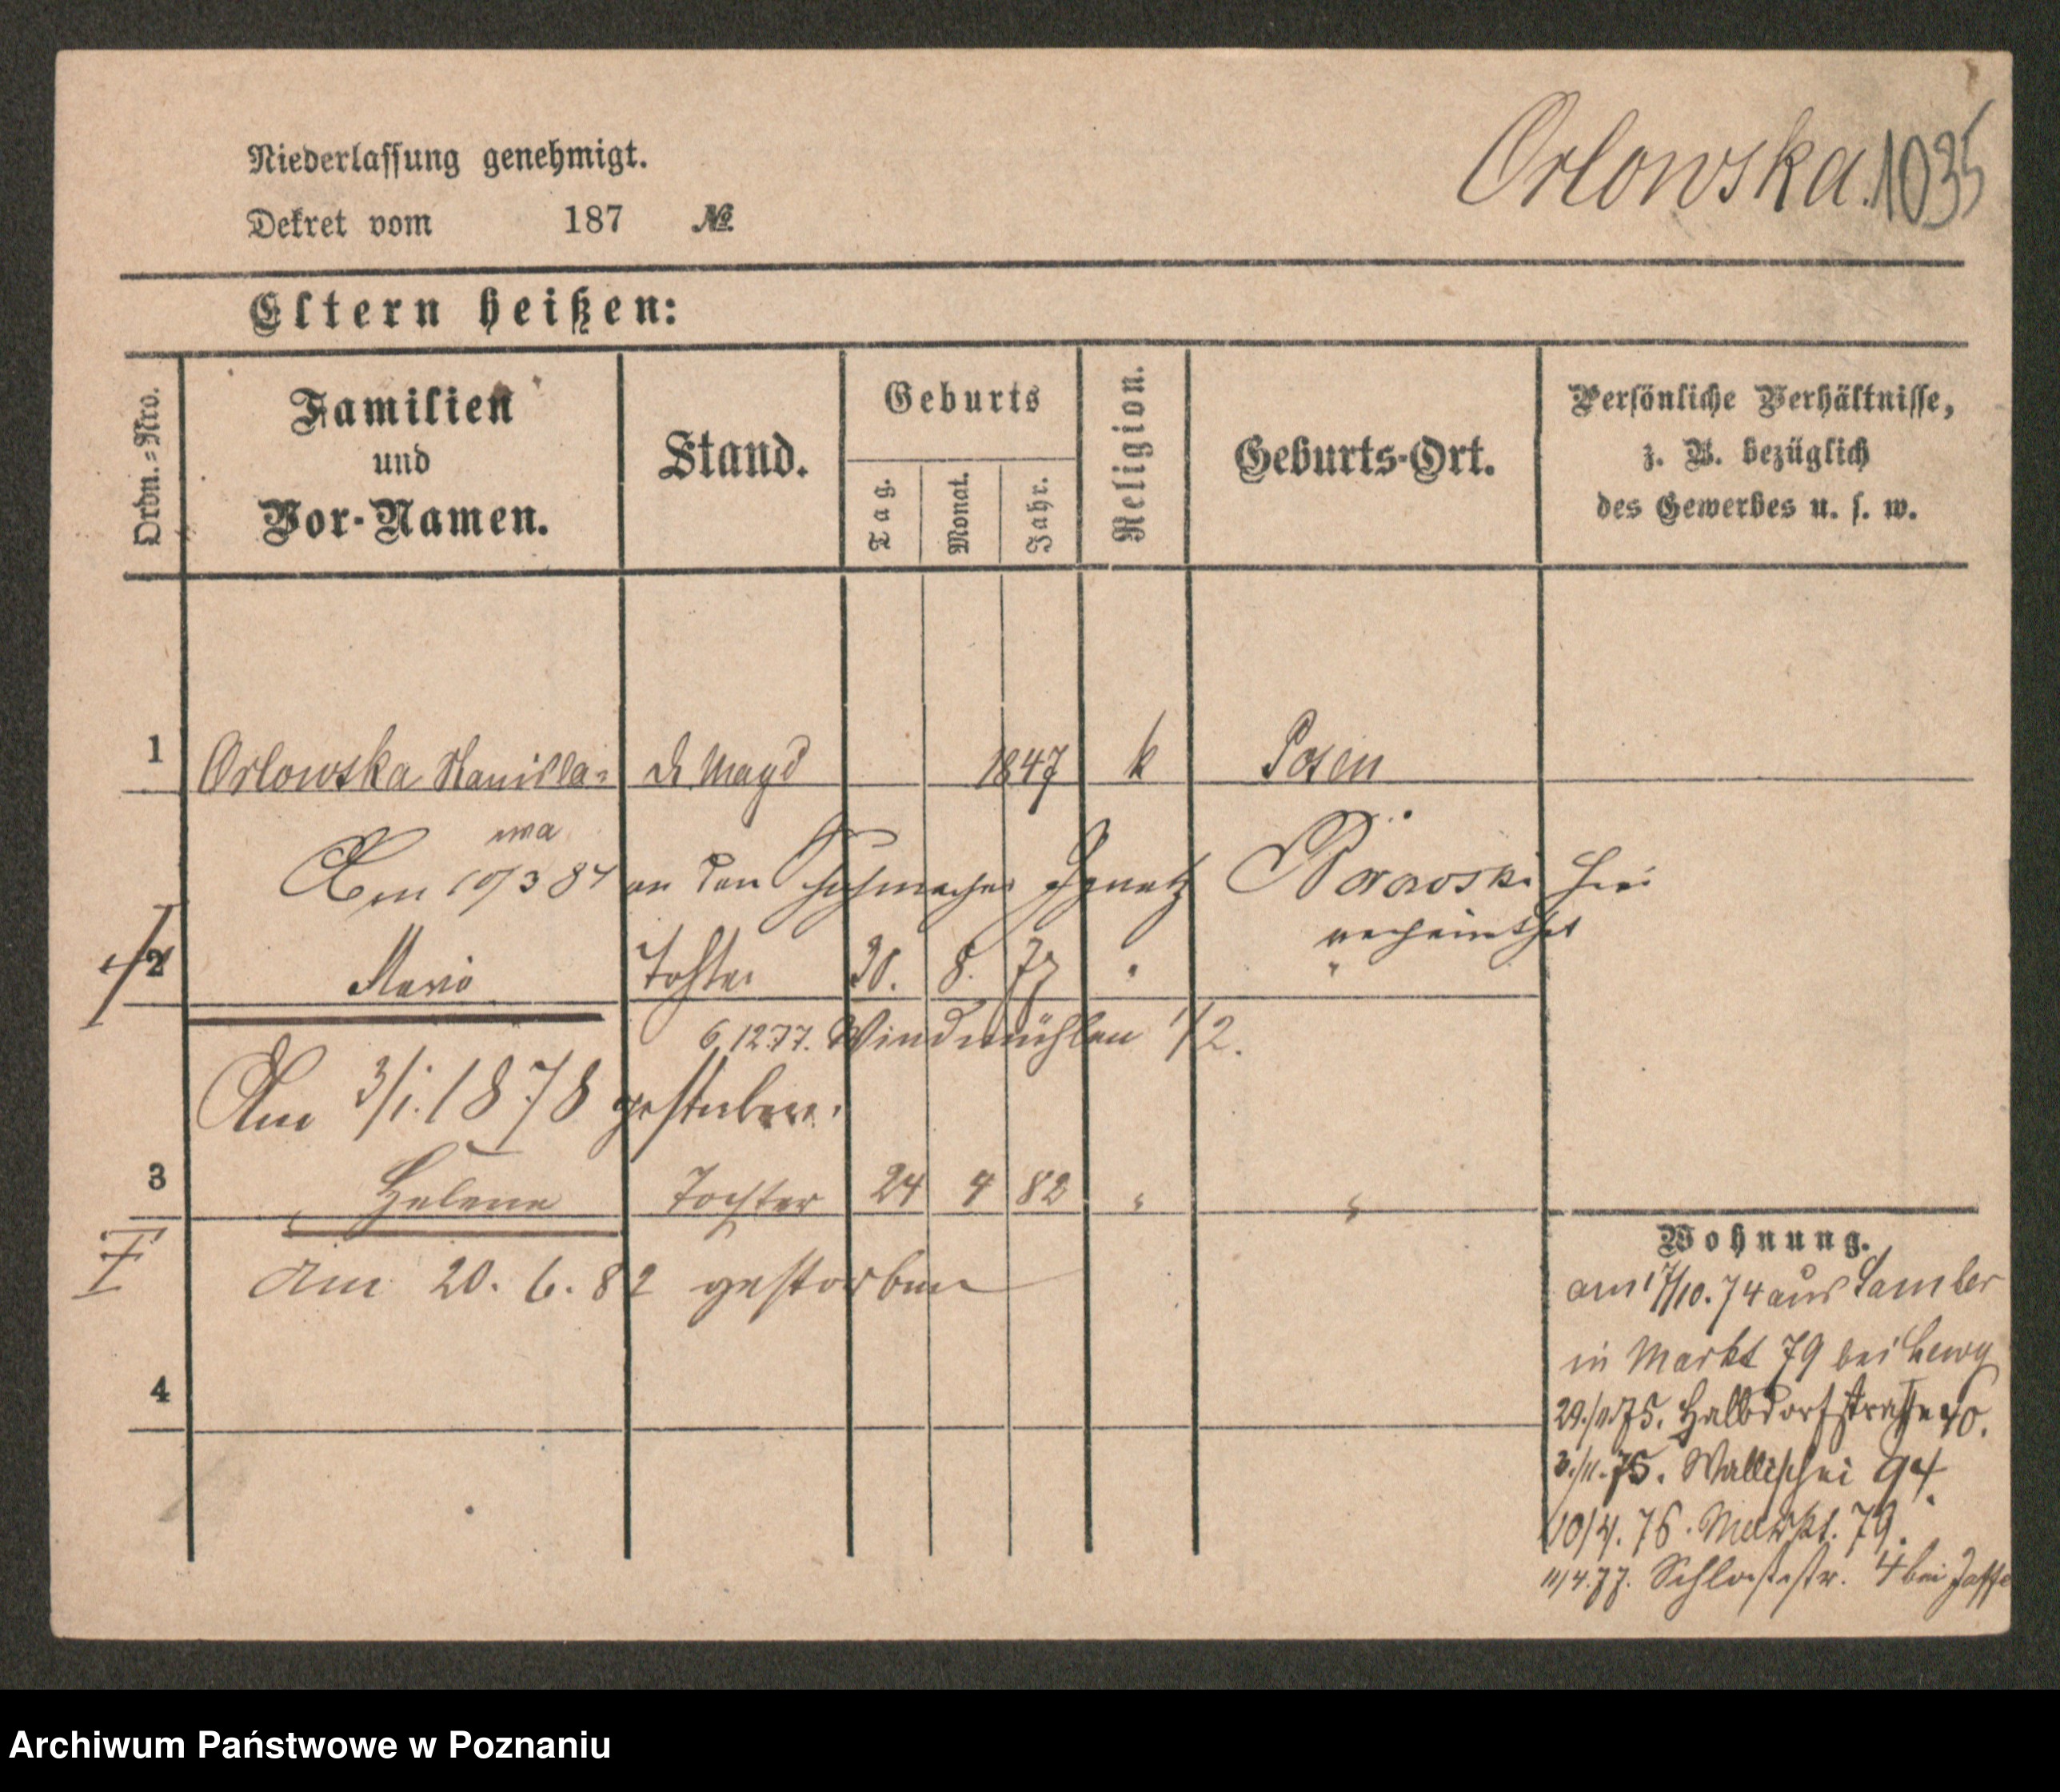 Orlowska. 1035
Niederlassung genehmigt.
Dekret vom 187 №
Eltern heißen:
Ordn.=Nro.
Familien
und
Vor-Namen.
Stand.
Geburts
Tag.
Monat.
Jahr.
Religion.
Geburts-Ort.
Persönliche Verhältnisse,
z. B. bezüglich
des Gewerbes u. s. w.
1 Orlowska Stanisla= d. Magd 1847 k Posen
wa
Am 10/3 84 an den Schuhmacher Ignatz Borowski hier
verheirathet
2 Maria Tochter 30. 8. 77 " "
6.12.77. Windmühlen 1/2.
Am 3/1. 1878 gestorben.
3 Helene Tochter 24 4 82 " "
am 20. 6. 82 gestorben
4
Wohnung.
am 17/10. 74 aus
in Markt 79 bei
29./10.75. Halbdorfstrasse 40.
3./11.75. Wallischei 94.
10/4. 76. Markt. 79.
11/4.77. Schloßstr. 4 bei Jaffe
Archiwum Państwowe w Poznaniu